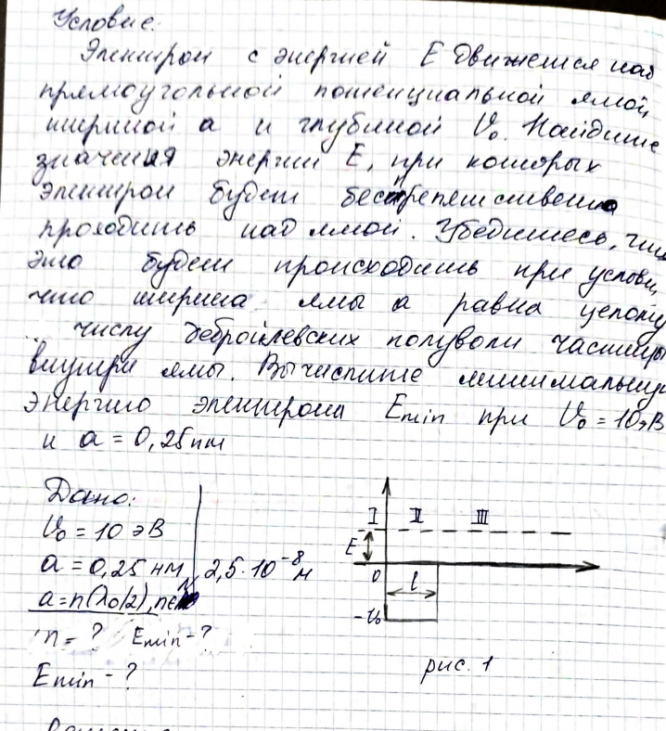 Условие:
Электрон с энергией E движется над
прямоугольной потенциальной ямой,
шириной a и глубиной U₀. Найдите
значения энергии E, при которых
электрон будет беспрепятственно
проходить над ямой. Убедитесь, что
это будет происходить при услови
что ширина ямы a равна целому
числу дебройлевских полуволн частицы
внутри ямы. Вычислите минимальную
энергию электрона Emin при U₀ = 10 эВ
и a = 0,25 нм
Дано:
U₀ = 10 эВ
a = 0,25 нм 2,5·10⁻⁸ м
a = n(λ₀/2), n∈N
n = ? Emin - ?
Emin - ?
I II III
E
0 l
-U₀
рис. 1